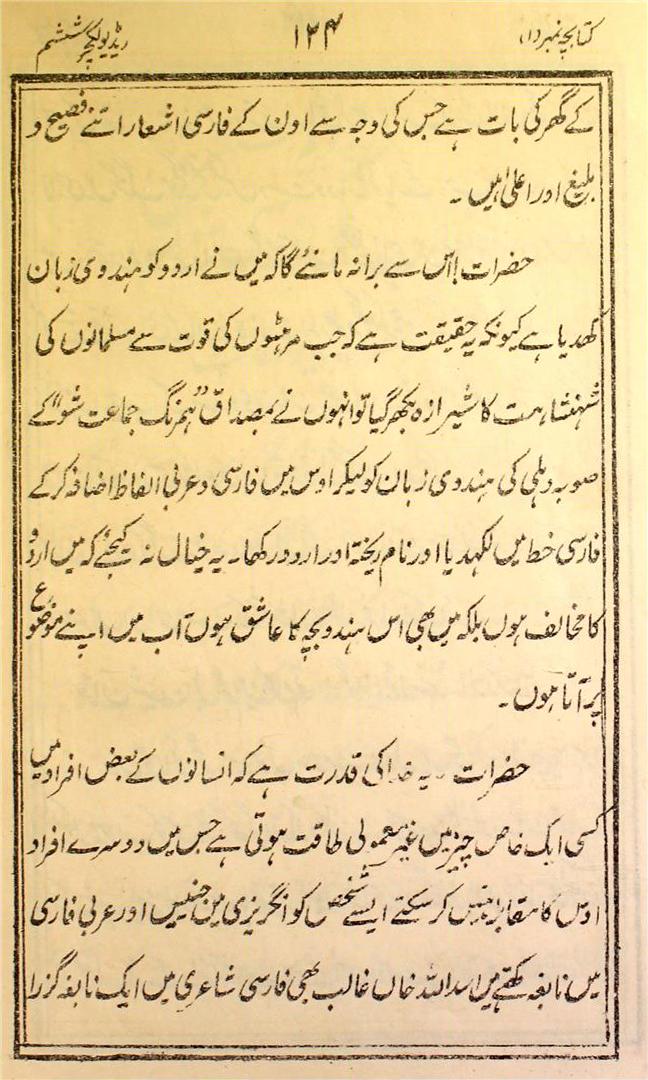 کتابچہ نمبر (۱)
۱۳۴
ریڈیو لکچر ششم
کے گھر کی بات ہے جس کی وجہ سے اون کے فارسی اشعار اتنے فصیح و
بلیغ اور اعلیٰ ہیں ۔
حضرات! اس سے برا نہ مانئے گا کہ میں نے اردو کو ہندوی زبان
کہدیا ہے کیونکہ یہ حقیقت ہے کہ جب مرہٹوں کی قوت سے مسلمانوں کی
شہنشاہت کا شیرازہ بکھر گیا تو انہوں نے بمصداق "ہمرنگ جماعت شو" کے
صوبہ دہلی کی ہندوی زبان کو لیکر اوس میں فارسی و عربی الفاظ اضافہ کر کے
فارسی خط میں لکھدیا اور نام ریختہ اور اردو رکھا ۔ یہ خیال نہ کیجئے کہ میں اردو
کا مخالف ہوں بلکہ میں بھی اس ہندو بچہ کا عاشق ہوں اب میں اپنے موضوع
پر آتا ہوں ۔
حضرات ۔ یہ خدا کی قدرت ہے کہ انسانوں کے بعض افراد میں
کسی ایک خاص چیز میں غیر معمولی طاقت ہوتی ہے جس میں دوسرے افراد
اوس کا مقابلہ نہیں کر سکتے ایسے شخص کو انگریزی میں جنیس اور عربی فارسی
میں نابغہ کہتے ہیں اسد اللہ خاں غالب بھی فارسی شاعری میں ایک نابغہ گزرا